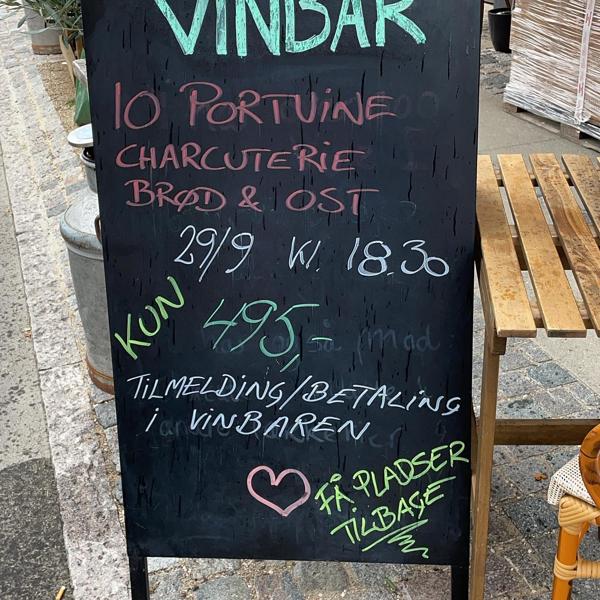 VINBAR
10 PORTVINE
CHARCUTERIE
BRØD & OST
29/9 Kl. 18.30
KUN 495,-
TILMELDING/BETALING
i VINBAREN
FÅ PLADSER
TILBAGE